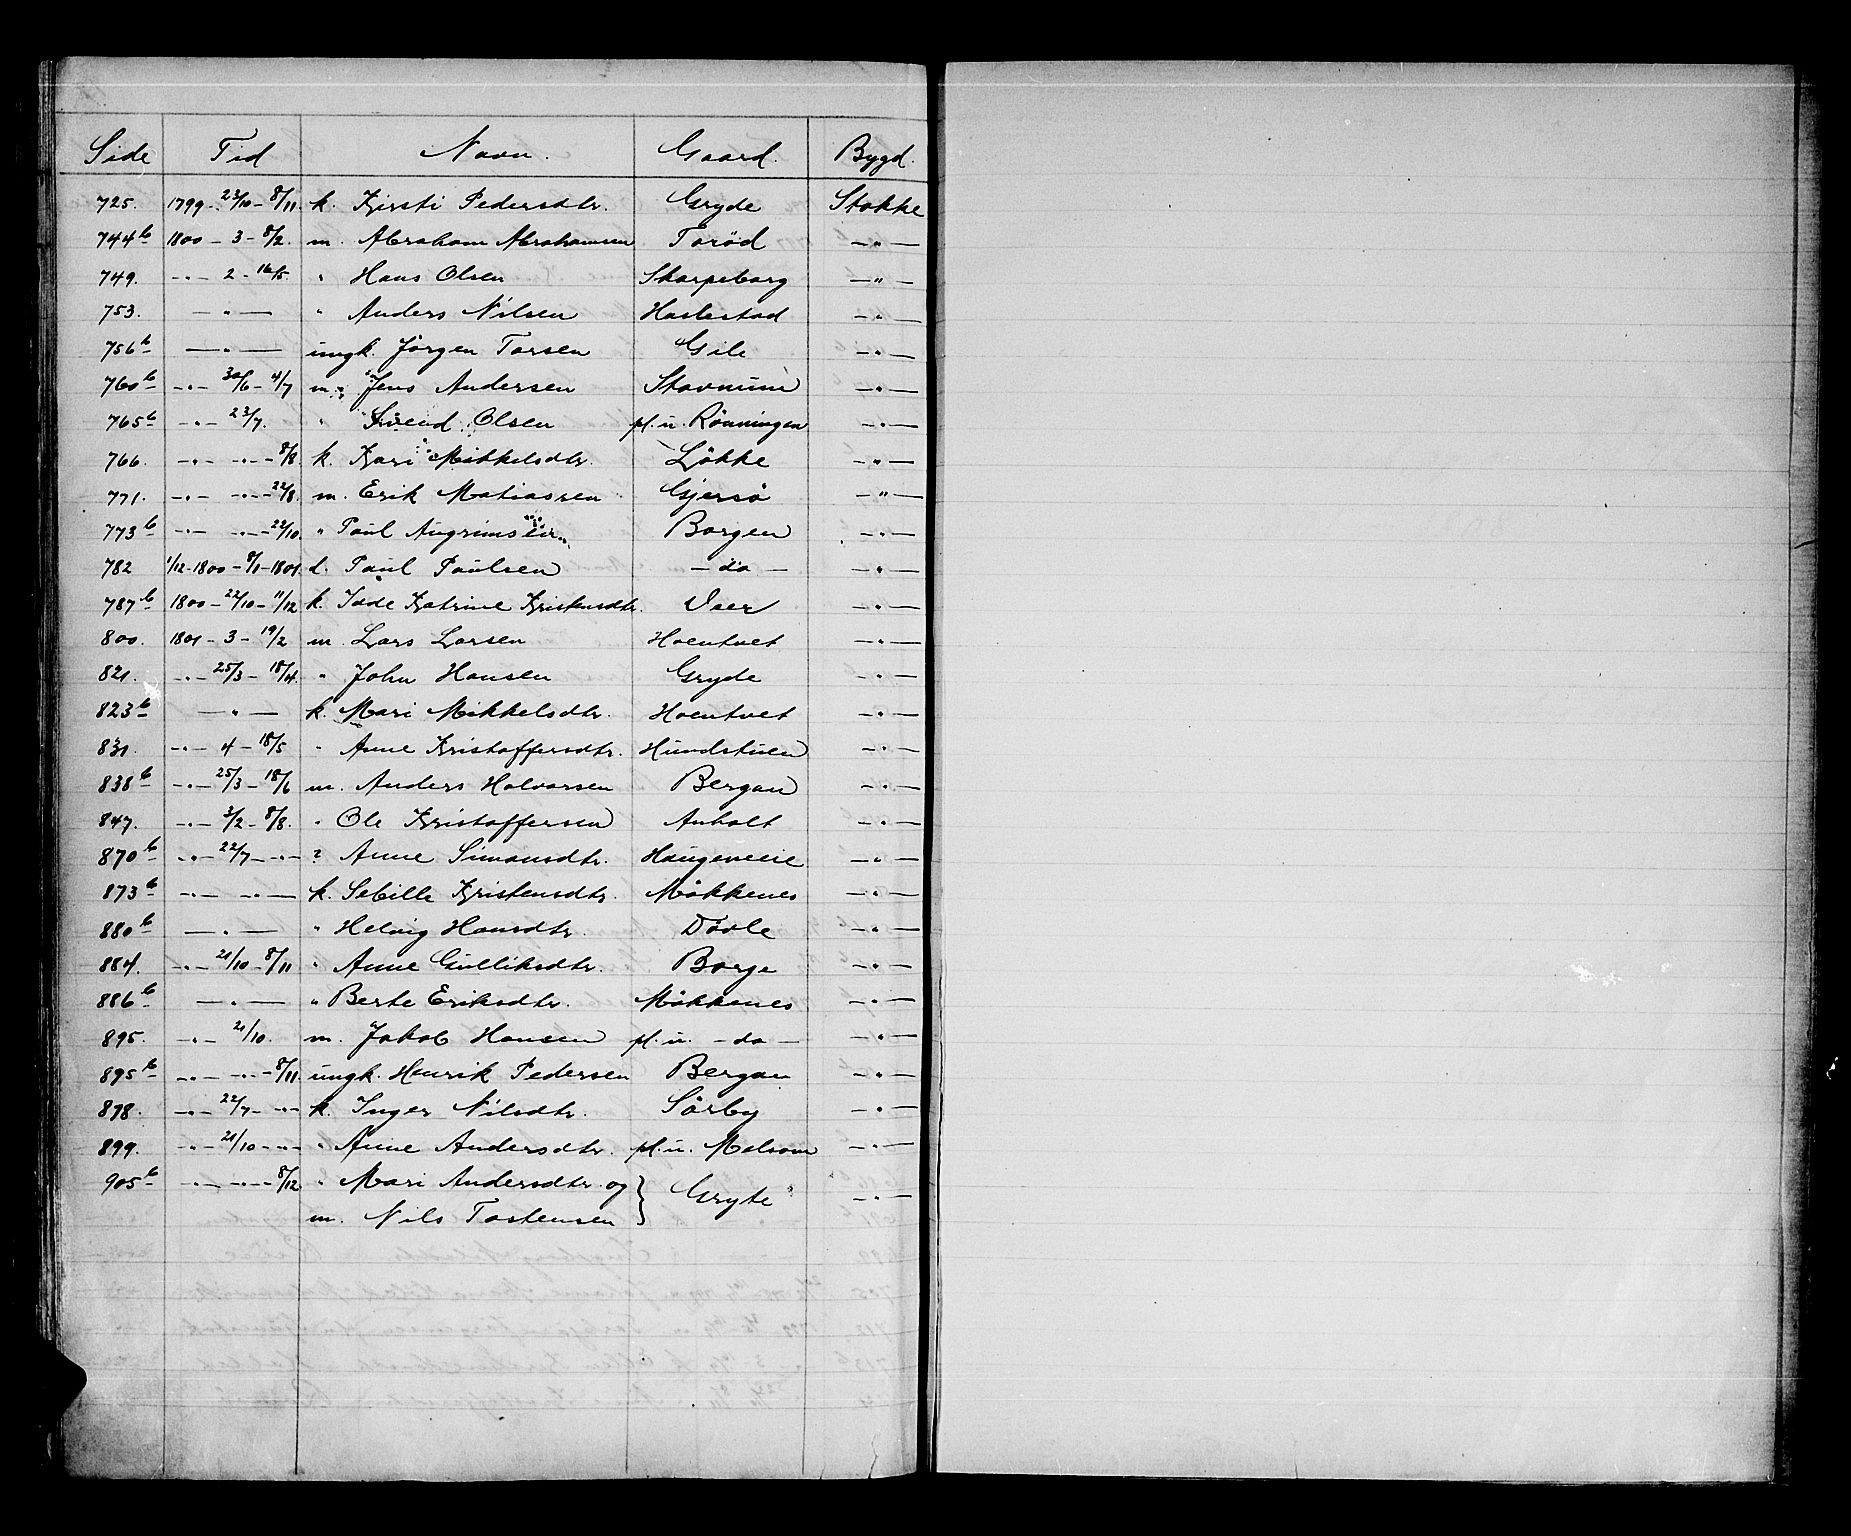 Side Tid Navn. Gaard. Bygd.
725. 1799-23/10-8/11. k. Kirsti Pedersdtr. Gryde Stokke
744b 1800-3-8/2. m. Abraham Abrahamsen Torød -"-
749. -"- 2-16/5. " Hans Olsen Skarpeborg -"-
753. -"- " Anders Nilsen Haslestad -"-
756b -"- ungk. Jörgen Torsen Gile -"-
760b -"- 30/6-4/7 m. Jens Andersen Stavnum -"-
765b -"- 23/7. " Svend Olsen pl. u. Rönningen -"-
766. -"- -"- 8/8. k. Kari Mikkelsdtr. Lökke -"-
771. -"- -"- 22/8. m. Erik Matiassen Gjersö -"-
773b -"- -"- 22/10. " Paul Angrimsen Borgen -"-
782 1/12-1800-8/1-1801. d. Paul Paulsen -do- -"-
787b 1800-22/10-11/12 k. Idde Katrine Kristensdtr. Veer -"-
800. 1801-3-19/2 m. Lars Larsen Hoentvet -"-
821. -"- 25/3-18/4. " John Hansen Gryde -"-
823b -"- k. Mari Mikkelsdtr. Hoentvet -"-
831. -"- 4-18/5 " Anne Kristoffersdtr. Hundstuen -"-
838b -"- 25/3-18/6 m. Anders Halvorsen Bergan -"-
847. -"- 3/2-8/8. " Ole Kristoffersen Anholt -"-
870b -"- 22/7-"- ? Anne Simonsdtr. Haugeneie -"-
873b -"- -"- k. Sebille Kristensdtr. Mökkenes -"-
880b -"- " Helvig Hansdtr. Dövle -"-
884. -"- 21/10-8/11 " Anne Gulliksdtr. Borge -"-
886b -"- " Berte Eriksdtr. Mökkenes -"-
895. -"- 21/10. m. Jakob Hansen pl. u. -do- -"-
895b -"- -"- 8/11. ungk. Henrik Pedersen Bergan -"-
898. -"- 22/7-"- k. Inger Nilsdtr. Sörby -"-
899. -"- 21/10-"- " Anne Andersdtr. pl. u. Melsom -"-
905b -"- -"- 8/12 " Mari Andersdtr. og } Gryte -"-
m. Nils Tostensen